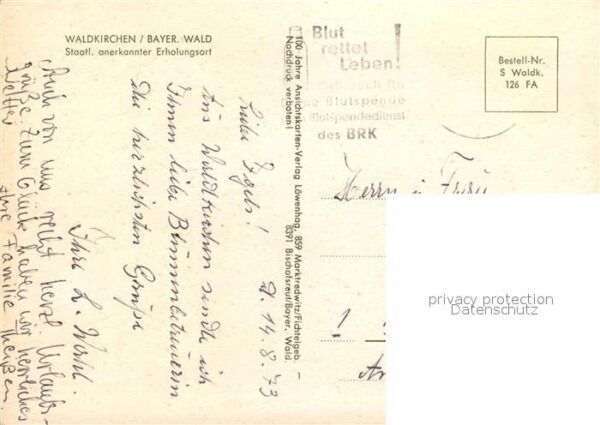 WALDKIRCHEN / BAYER. WALD
Staatl. anerkannter Erholungsort
Blut
rettet
Leben!
Gib auch Du
eine Blutspende
Blutspendedienst
des BRK
Bestell-Nr.
S Waldk.
126 FA
100 Jahre Ansichtskarten-Verlag Löwenhag, 859 Marktredwitz/Fichtelgeb. –
Nachdruck verboten! 8391 Bischofsreut/Bayer. Wald.
d. 14.8.73
Liebe
Aus Waldkirchen sende ich
Ihnen liebe Blumenbetreuerin
die herzlichsten Grüße
Ihre L. Wahl.
Auch von uns recht herzl. Urlaubs-
grüße. Zum Glück haben wir herrliches
Wetter
Ihre Familie Theißen.
Herrn u. Frau
1
privacy protection
Datenschutz